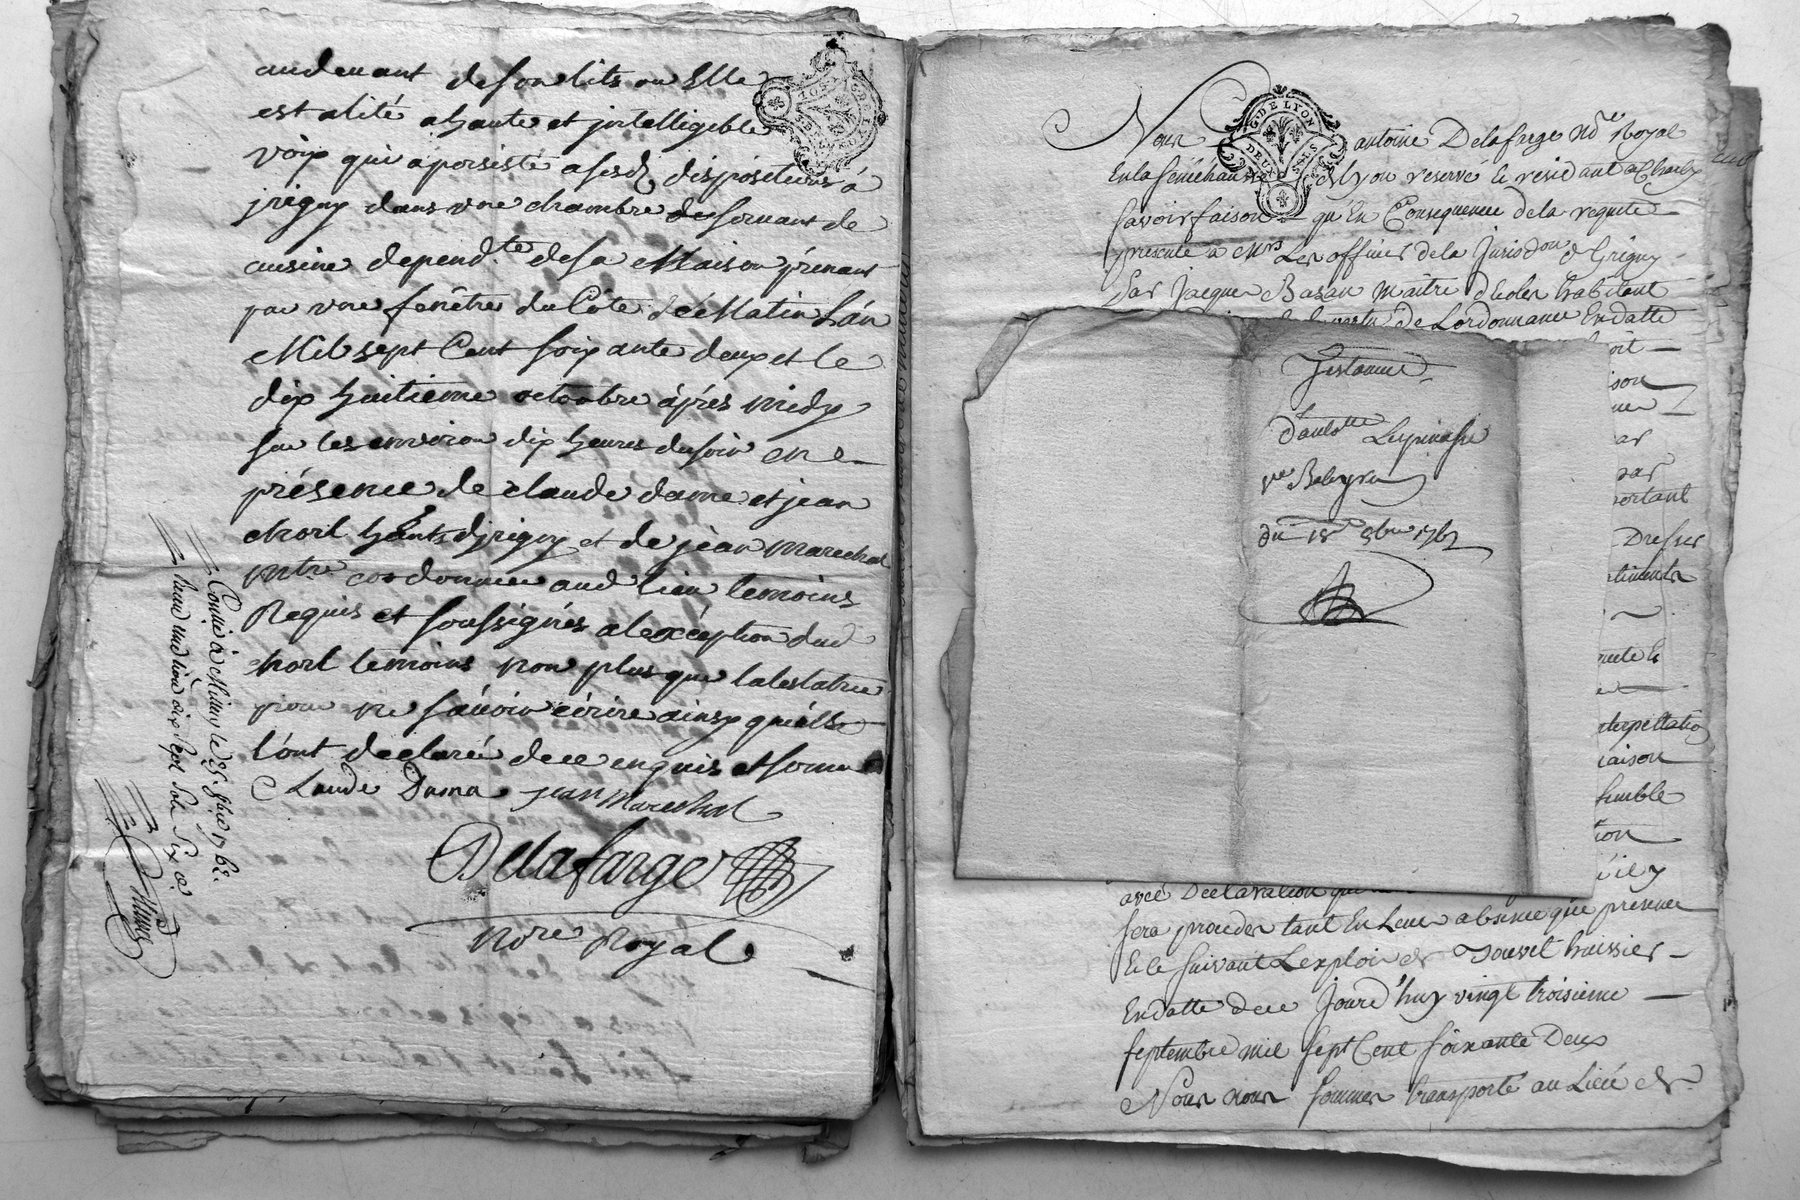 audevant de son lits ou Elle
est alité a haute et jntelligeble
voix qui a persisté a sesd. dispositions à
jrigny dans une chambre deservant de
cuisine depend.te de sa Maison prenant
par une fenêtre du Côté de Matin L'án
Mil sept Cent soixante deux et le
dix huitieme octoubre áprés midy
sur les environ dix heures du soir en
présence de claude dama et jean
hort hants djrigny et de jean marechal
mtre cordonnier aud lieu temoins
Requis et soussignés a l'exception dud
hort temoins non plus que la testatrice
pour ne sávoir écrire ainsy quéils
l'ont declaré de ce enquis et somm
Claude Dama jean Mareshal
Delafarge
Nore Royal
Conné à Millery le
aud lieu dix sept sols six d
G. DE LYON
DEUX SOLS
G. DE LYON
DEUX SOLS
Nous antoine Delafarge Nore Royal
En la senéchaussé de Lyon reservé le résidant a Charly
savoir faison qu'En Consequence de la requete
presenté a Mrs Les officiers de la Jurisdon d Grigny
Par Jacques Basan maitre d'Ecoles habitant
de Lordonnance En datte
oit
ison
par
portant
Dresser
timents
quete Et
nterpellation
maison
humble
tion
il y
avec Declaration que
sera proceder tant En Leur absence que presence
Et le suivant Lexploit de Jouvet huissier
En datte de ce Jourd'huy vingt troisieme
septembre mil sept Cent soixante Deux
Nous nous sommes transporté au Lieu de
Testament
d'antoitte Lespinasse
ve Baleyrin
du 18e 8bre 1762